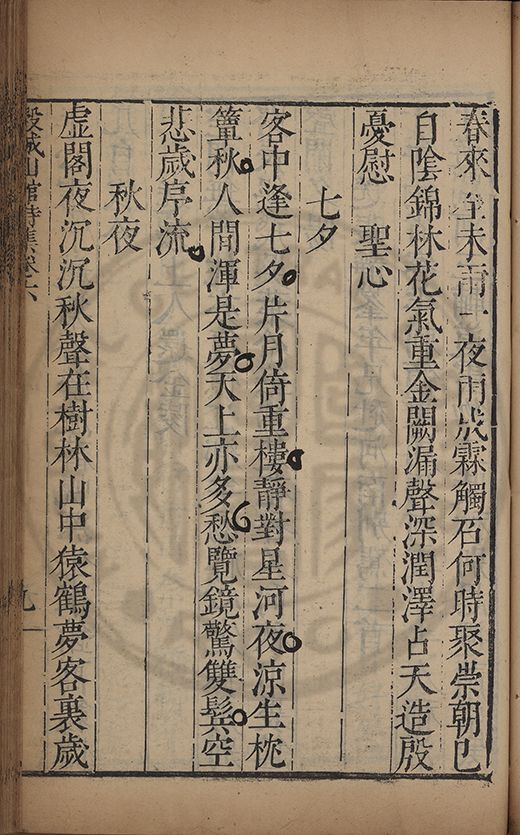 春來全未雨一夜雨成霖觸石何時聚崇朝已
自陰錦林花氣重金闕漏聲深潤澤占天造殷
憂慰　聖心
七夕
客中逢七夕片月倚重樓靜對星河夜涼生枕
簟秋人間渾是夢天上亦多愁覽鏡驚雙鬓空
悲歲序流
秋夜
虛閣夜沉沉秋聲在樹林山中猿鶴夢客裏歲
穀城山館詩集卷六
九